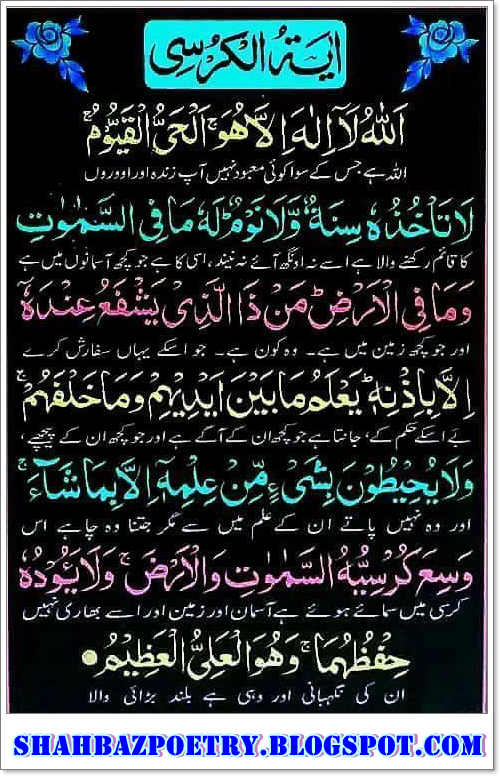 اٰیَةُ الْکُرْسِی
اَللّٰهُ لَاۤ اِلٰهَ اِلَّا هُوَ ۚ اَلْحَیُّ الْقَیُّوْمُ ۚ
اللہ ہے جس کے سوا کوئی معبود نہیں آپ زندہ اور اوروں
لَا تَاْخُذُهٗ سِنَةٌ وَّلَا نَوْمٌ ؕ لَهٗ مَا فِی السَّمٰوٰتِ
کا قائم رکھنے والا ہے اسے نہ اونگھ آئے نہ نیند، اسی کا ہے جو کچھ آسمانوں میں ہے
وَمَا فِی الْاَرْضِ ؕ مَنْ ذَا الَّذِیْ یَشْفَعُ عِنْدَهٗۤ
اور جو کچھ زمین میں ہے۔ وہ کون ہے۔ جو اسکے یہاں سفارش کرے
اِلَّا بِاِذْنِهٖ ؕ یَعْلَمُ مَا بَیْنَ اَیْدِیْهِمْ وَمَا خَلْفَهُمْ ۚ
بے اسکے حکم کے، جانتا ہے جو کچھ ان کے آگے ہے اور جو کچھ ان کے پیچھے،
وَلَا یُحِیْطُوْنَ بِشَیْءٍ مِّنْ عِلْمِهٖۤ اِلَّا بِمَا شَآءَ ۚ
اور وہ نہیں پاتے ان کے علم میں سے مگر جتنا وہ چاہے اس
وَسِعَ کُرْسِیُّهُ السَّمٰوٰتِ وَالْاَرْضَ ۚ وَلَا یَـُٔوْدُهٗ
کرسی میں سمائے ہوئے ہے آسمان اور زمین اور اسے بھاری نہیں
حِفْظُهُمَا ۚ وَهُوَ الْعَلِیُّ الْعَظِیْمُ ●
ان کی نگہبانی اور وہی ہے بلند بڑائی والا
SHAHBAZPOETRY.BLOGSPOT.COM